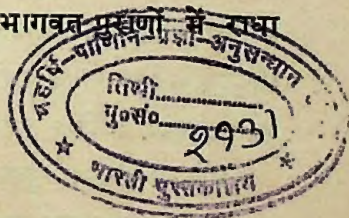 भागवत पुराणों में राधा
महर्षि-पाणिनि-प्रज्ञा-अनुसन्धान
तिथी..........
पु०सं०..........
२१३१
★ भारती पुस्तकालय ★